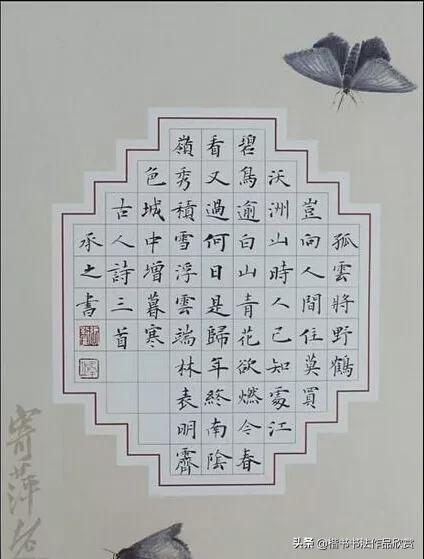 孤雲將野鶴
豈向人間住莫買
沃洲山時人已知處江
碧鳥逾白山青花欲燃今春
看又過何日是歸年終南陰
嶺秀積雪浮雲端林表明霽
色城中增暮寒
古人詩三首
承之書
寄萍
头条 @楷书书法作品欣赏